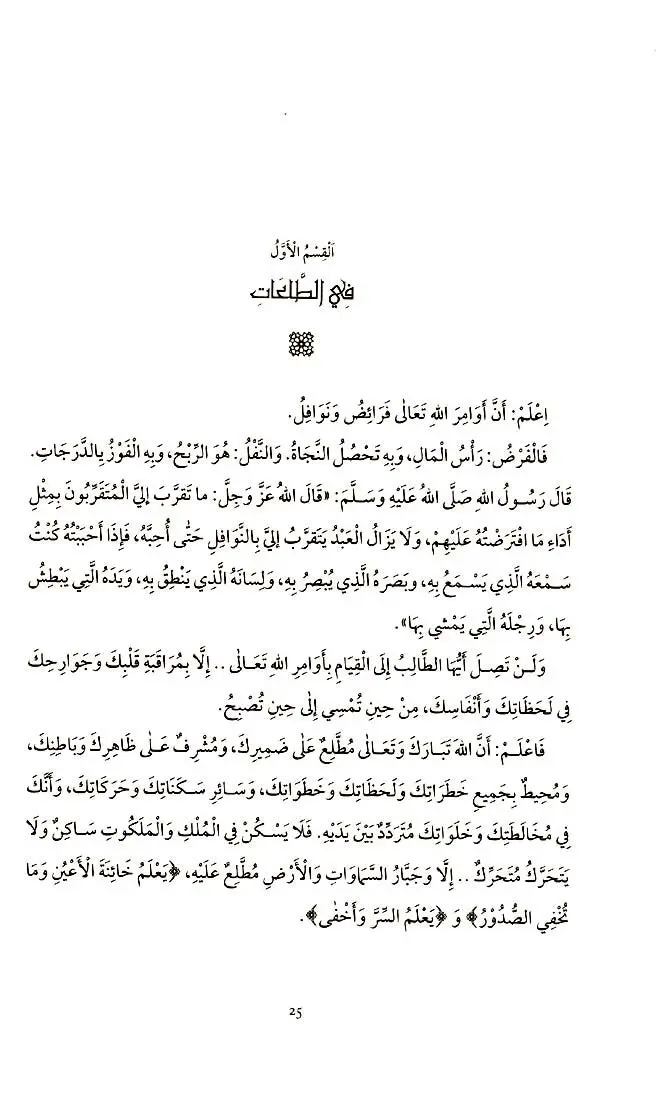 اَلْقِسْمُ الْأَوَّلُ
فِي الطَّاعَاتِ
اِعْلَمْ: أَنَّ أَوَامِرَ اللهِ تَعَالَى فَرَائِضُ وَنَوَافِلُ.
فَالْفَرْضُ: رَأْسُ الْمَالِ، وَبِهِ تَحْصُلُ النَّجَاةُ. وَالنَّفْلُ: هُوَ الرِّبْحُ، وَبِهِ الْفَوْزُ بِالدَّرَجَاتِ.
قَالَ رَسُولُ اللهِ صَلَّى اللهُ عَلَيْهِ وَسَلَّمَ: «قَالَ اللهُ عَزَّ وَجَلَّ: ما تَقرَّبَ إِليَّ الْمُتَقَرِّبُونَ بِمِثْلِ
أَدَاءِ مَا افْتَرَضْتُهُ عَلَيْهِمْ، وَلَا يَزَالُ الْعَبْدُ يَتَقرَّبُ إِليَّ بِالنَّوَافِلِ حَتَّى أُحِبَّهُ، فَإِذَا أَحْبَبْتُهُ كُنْتُ
سَمْعَهُ الَّذِي يَسْمَعُ بِهِ، وَبَصَرَهُ الَّذِي يُبْصِرُ بِهِ، وَلِسَانَهُ الَّذِي يَنْطِقُ بِهِ، وَيَدَهُ الَّتِي يَبْطِشُ
بِهَا، وَرِجْلَهُ الَّتِي يَمْشي بِهَا».
وَلَنْ تَصِلَ أَيُّهَا الطَّالِبُ إِلَى الْقِيَامِ بِأَوَامِرِ اللهِ تَعَالَى .. إِلَّا بِمُرَاقَبَةِ قَلْبِكَ وَجَوَارِحِكَ
فِي لَحَظَاتِكَ وَأَنْفَاسِكَ، مِنْ حِينِ تُمْسِي إِلَى حِينِ تُصْبِحُ.
فَاعْلَمْ: أَنَّ اللهَ تَبَارَكَ وَتَعَالَى مُطَّلِعٌ عَلَى ضَمِيرِكَ، وَمُشْرِفٌ عَلَى ظَاهِرِكَ وَبَاطِنِكَ،
وَمُحِيطٌ بِجَمِيعِ خَطَرَاتِكَ وَلَحَظَاتِكَ وَخَطَوَاتِكَ، وَسَائِرِ سَكَنَاتِكَ وَحَرَكَاتِكَ، وَأَنَّكَ
فِي مُخَالَطَتِكَ وَخَلَوَاتِكَ مُتَرَدِّدٌ بَيْنَ يَدَيْهِ. فَلَا يَسْكُنُ فِي الْمُلْكِ وَالْمَلَكُوتِ سَاكِنٌ وَلَا
يَتَحَرَّكُ مُتَحَرِّكٌ .. إِلَّا وَجَبَّارُ السَّمَاوَاتِ وَالْأَرْضِ مُطَّلِعٌ عَلَيْهِ، ﴿يَعْلَمُ خَائِنَةَ الْأَعْيُنِ وَمَا
تُخْفِي الصُّدُوْرُ﴾ وَ ﴿يَعْلَمُ السِّرَّ وَأَخْفَى﴾.
25